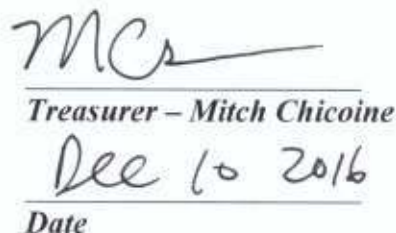 MCs
Treasurer – Mitch Chicoine
Dec 10 2016
Date